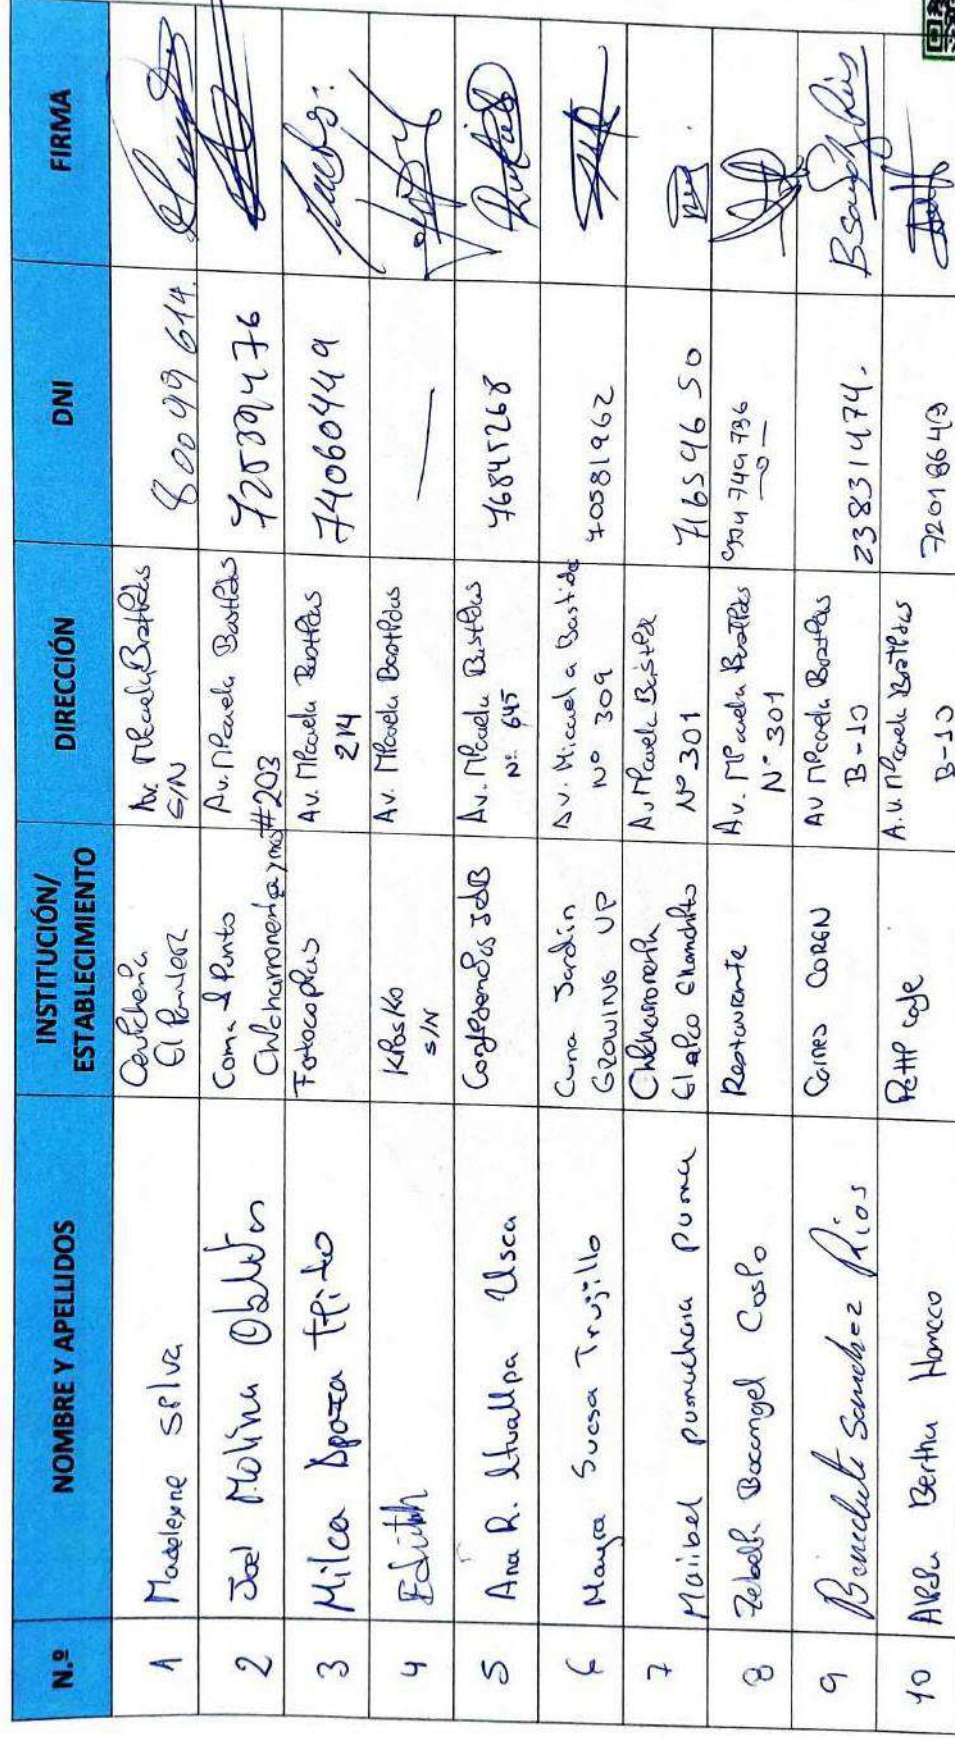 N.º NOMBRE Y APELLIDOS INSTITUCIÓN/ ESTABLECIMIENTO DIRECCIÓN DNI FIRMA
1 Madeleyne Silva Cevicheria El Av. Micaela Bastidas S/N 80099614.
2 Joel Molina Coma & Punto Chicharroneria Av. Micaela Bastidas #203 72539476
3 Milca Apaza Fotocopias Av. Micaela Bastidas 214 74060449
4 Edith Kiosko S/N Av. Micaela Bastidas —
5 Ana R. Atuallpa Usca JDB Av. Micaela Bastidas Nº 645 76845268
6 Mayra Sucsa Trujillo Cuna Jardin GROWING UP Av. Micaela Bastidas Nº 309 70581962
7 Maribel pumachara puma Chicharroneria Av Micaela Bastidas Nº 301 71659650
8 Bocangel Cosio Restaurante Av. Micaela Bastidas Nº 301
9 Sanchez Rios Carnes COREN Av Micaela Bastidas B-10 23831474.
10 Bertha Hancco A.v. Micaela Bastidas B-10 72018649